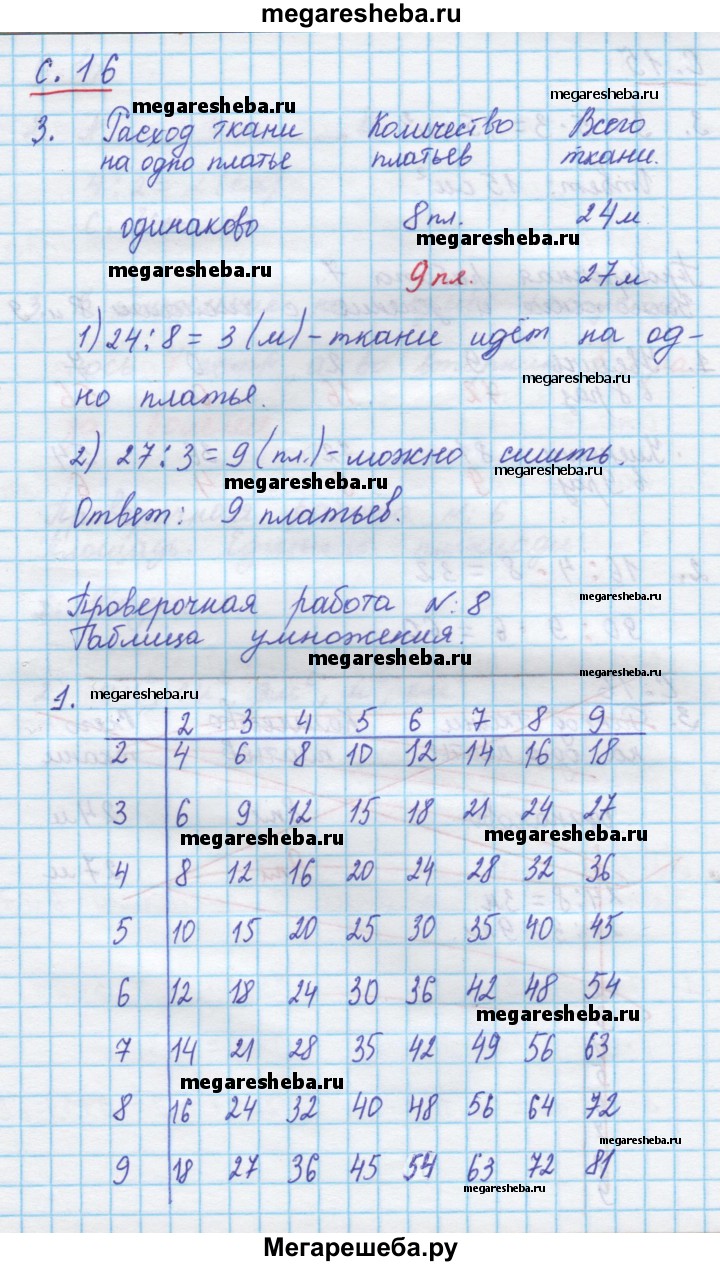 megaresheba.ru
с. 16
megaresheba.ru
3. Расход ткани Количество Всего
на одно платье платьев ткани.
одинаково 8 пл. 24 м
megaresheba.ru
megaresheba.ru
9 пл. 27 м
1) 24 : 8 = 3 (м) - ткани идёт на од-
megaresheba.ru
но платье.
2) 27 : 3 = 9 (пл.) - можно сшить.
megaresheba.ru
megaresheba.ru
Ответ: 9 платьев.
megaresheba.ru
Проверочная работа №: 8
Таблица умножения.
megaresheba.ru
megaresheba.ru
1. megaresheba.ru
· 2 3 4 5 6 7 8 9
2 4 6 8 10 12 14 16 18
3 6 9 12 15 18 21 24 27
megaresheba.ru megaresheba.ru
4 8 12 16 20 24 28 32 36
5 10 15 20 25 30 35 40 45
6 12 18 24 30 36 42 48 54
megaresheba.ru
7 14 21 28 35 42 49 56 63
megaresheba.ru
8 16 24 32 40 48 56 64 72
megaresheba.ru
9 18 27 36 45 54 63 72 81
megaresheba.ru
Мегарешеба.ру